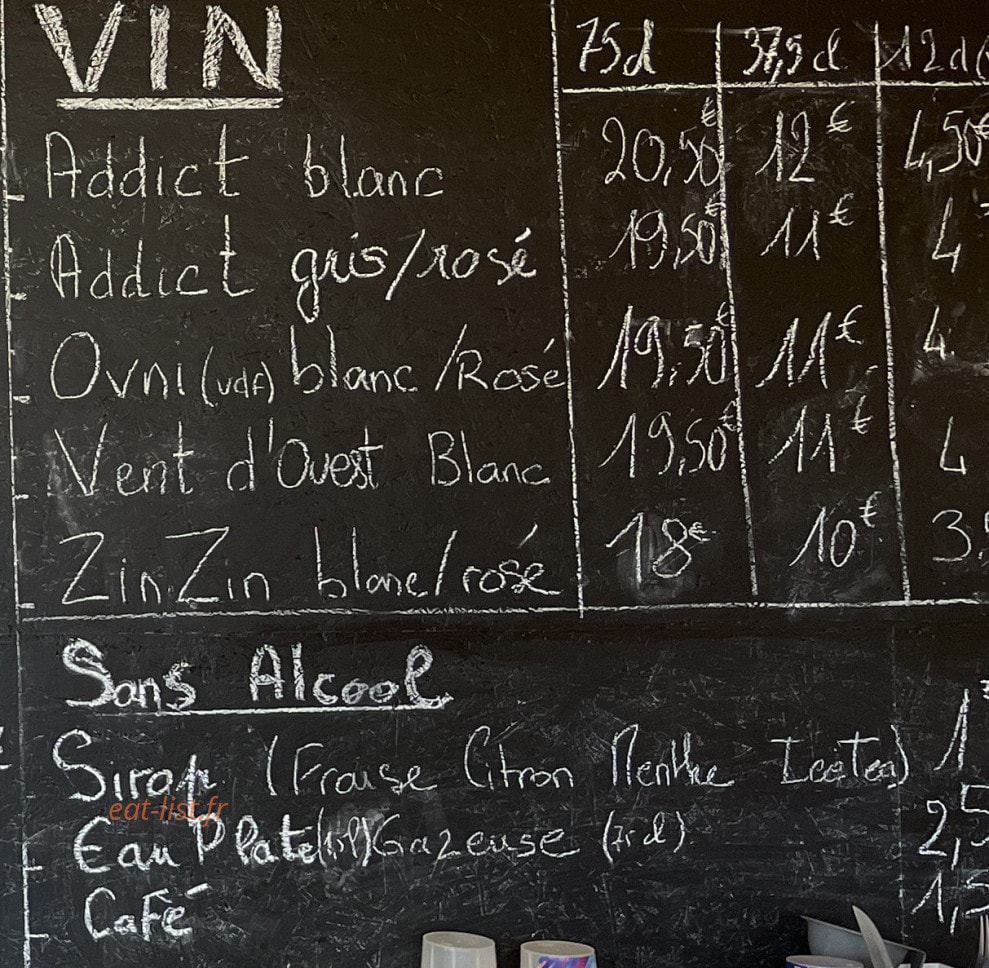 VIN 75d 37,5d 12d
Addict blanc 20,50€ 12€ 4,50€
Addict gris/rosé 19,50€ 11€ 4
Ovni (vdf) blanc/Rosé 19,50€ 11€ 4
Vent d'Ouest Blanc 19,50€ 11€ 4
ZinZin blanc/rosé 18€ 10€ 3.
Sans Alcool
Sirop (Fraise Citron Menthe IceTea) 1
eat-list.fr
Eau Plate Gazeuse 2,5
Café 1,5